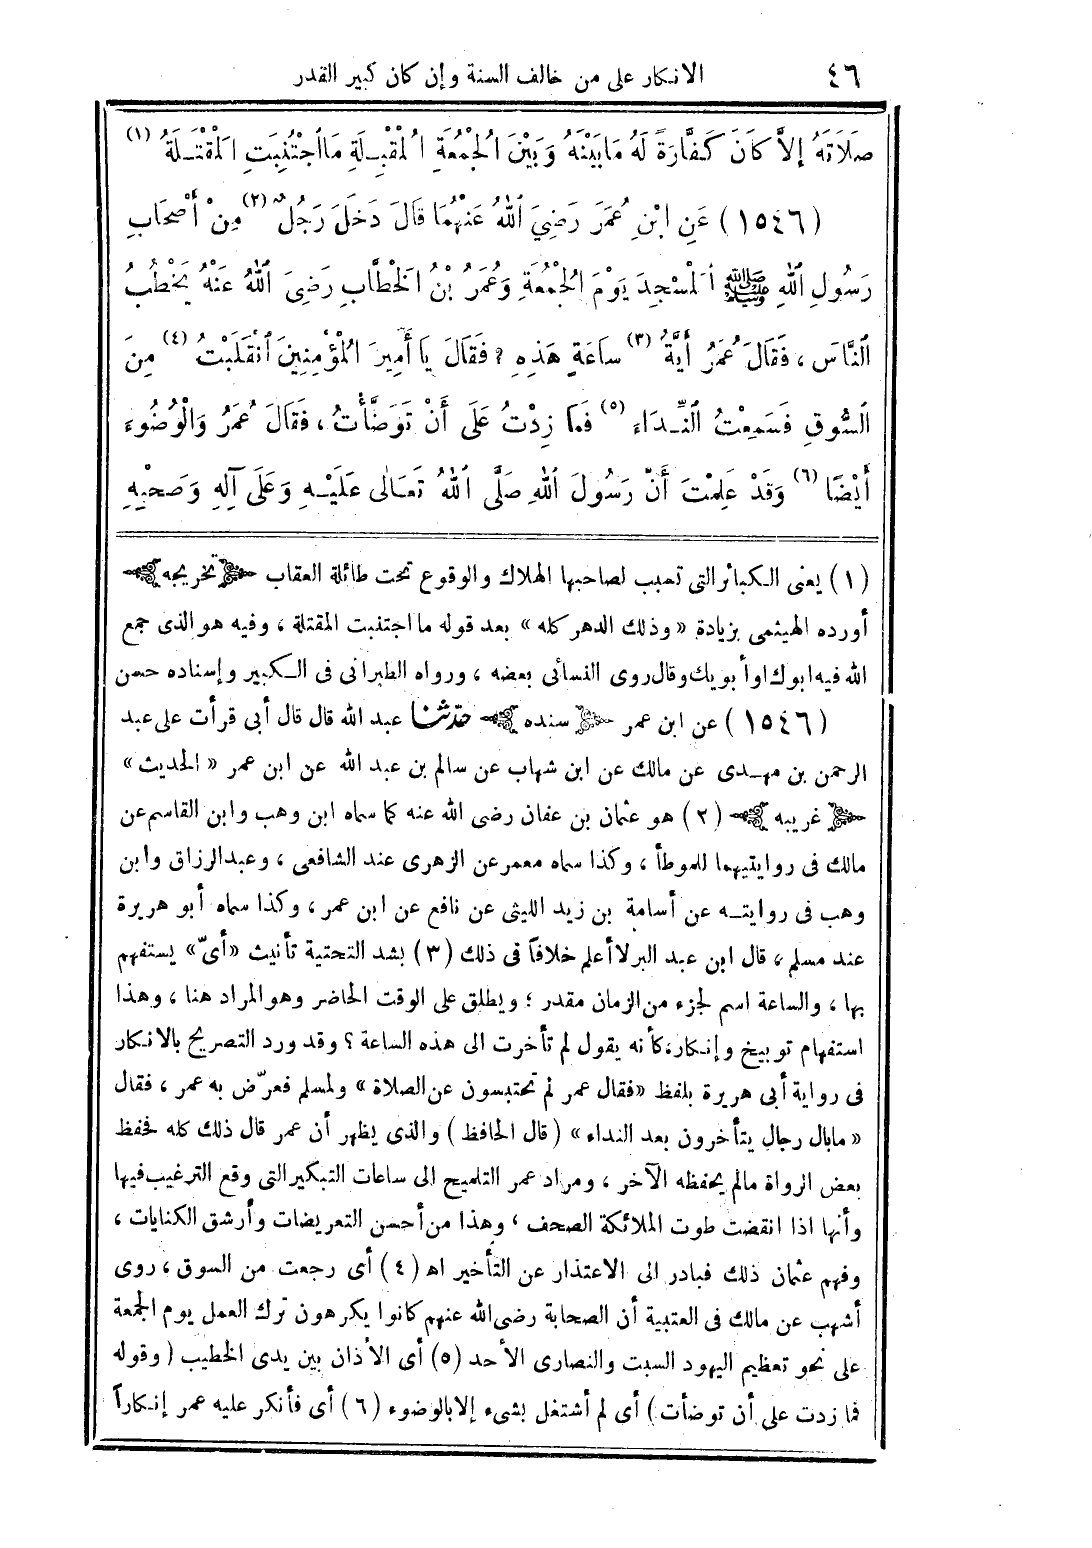 ٤٦ الانكار على من خالف السنة وإن كان كبير القدر
صَلَاتَهُ إِلاَّ كَانَ كَفَّارَةً لَهُ مَابَيْنَهُ وَبَيْنَ الْجُمْعَةِ الْمُقْبِلَةِ مَا اجْتُنِبَتِ الْمَقْتَلَةُ (١)
(١٥٤٦) عَنِ ابْنِ عُمَرَ رَضِيَ اللهُ عَنْهُمَا قَالَ دَخَلَ رَجُلٌ (٢) مِنْ أَصْحَابِ
رَسُولِ اللهِ ﷺ الْمَسْجِدَ يَوْمَ الْجُمُعَةِ وَعُمَرُ بْنُ الْخَطَّابِ رَضِيَ اللهُ عَنْهُ يَخْطُبُ
النَّاسَ ، فَقَالَ عُمَرُ أَيَّةُ (٣) سَاعَةٍ هَذِهِ ؟ فَقَالَ يَا أَمِيرَ الْمُؤْمِنِينَ انْقَلَبْتُ (٤) مِنَ
السُّوقِ فَسَمِعْتُ النِّدَاءَ (٥) فَمَا زِدْتُ عَلَى أَنْ تَوَضَّأْتُ ، فَقَالَ عُمَرُ وَالْوُضُوءَ
أَيْضًا (٦) وَقَدْ عَلِمْتَ أَنَّ رَسُولَ اللهِ صَلَّى اللهُ تَعَالَى عَلَيْهِ وَعَلَى آلِهِ وَصَحْبِهِ
(١) يعنى الكبائر التى تسبب لصاحبها الهلاك والوقوع تحت طائلة العقاب تخريجه
أورده الهيثمى بزيادة «وذلك الدهر كله» بعد قوله ما اجتنبت المقتلة ، وفيه هو الذى جمع
الله فيه ابوك او أبويك وقال روى النسائى بعضه ، ورواه الطبرانى فى الكبير وإسناده حسن
(١٥٤٦) عن ابن عمر سنده حدثنا عبد الله قال قال أبى قرأت على عبد
الرحمن بن مهدى عن مالك عن ابن شهاب عن سالم بن عبد الله عن ابن عمر «الحديث»
غريبه (٢) هو عثمان بن عفان رضى الله عنه كما سماه ابن وهب وابن القاسم عن
مالك فى روايتيهما للموطأ ، وكذا سماه معمر عن الزهرى عند الشافعى ، وعبد الرزاق وابن
وهب فى روايته عن أسامة بن زيد الليثى عن نافع عن ابن عمر ، وكذا سماه أبو هريرة
عند مسلم ، قال ابن عبد البر لا أعلم خلافاً فى ذلك (٣) بشد التحتية تأنيث «أىّ» يستفهم
بها ، والساعة اسم لجزء من الزمان مقدر ؛ ويطلق على الوقت الحاضر وهو المراد هنا ، وهذا
استفهام توبيخ وإنكار ، كأنه يقول لم تأخرت الى هذه الساعة ؟ وقد ورد التصريح بالانكار
فى رواية أبى هريرة بلفظ «فقال عمر لم تحتبسون عن الصلاة» ولمسلم فعرّض به عمر ، فقال
«مابال رجال يتأخرون بعد النداء» (قال الحافظ) والذى يظهر أن عمر قال ذلك كله فحفظ
بعض الرواة مالم يحفظه الآخر ، ومراد عمر التلميح الى ساعات التبكير التى وقع الترغيب فيها
وأنها اذا انقضت طوت الملائكة الصحف ، وهذا من أحسن التعريضات وأرشق الكنايات ،
وفهم عثمان ذلك فبادر الى الاعتذار عن التأخير اه (٤) أى رجعت من السوق ، روى
أشهب عن مالك فى العتبية أن الصحابة رضى الله عنهم كانوا يكرهون ترك العمل يوم الجمعة
على نحو تعظيم اليهود السبت والنصارى الأحد (٥) أى الأذان بين يدى الخطيب (وقوله
فما زدت على أن توضأت) أى لم أشتغل بشىء إلا بالوضوء (٦) أى فأنكر عليه عمر إنكاراً